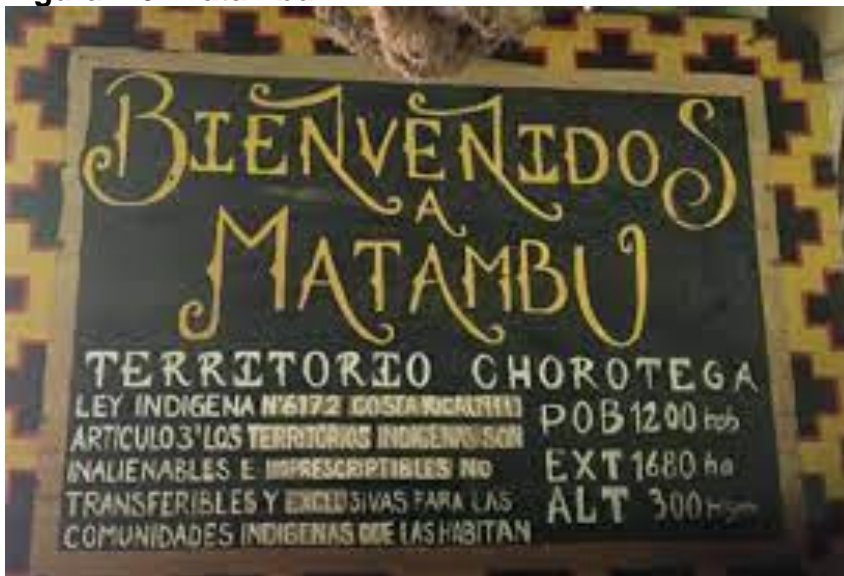 BIENVENIDOS
A
MATAMBU
TERRITORIO CHOROTEGA
LEY INDIGENA Nº6172 COSTA RICA
ARTICULO 3º LOS TERRITORIOS INDIGENAS SON
INALIENABLES E IMPRESCRIPTIBLES NO
TRANSFERIBLES Y EXCLUSIVAS PARA LAS
COMUNIDADES INDIGENAS QUE LAS HABITAN
POB 1200 hab
EXT 1680 ha
ALT 300 msnm